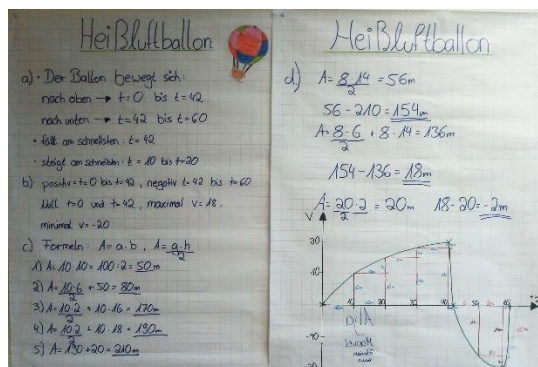 Heißluftballon
a) • Der Ballon bewegt sich:
nach oben → t=0 bis t=42
nach unten → t=42 bis t=60
• fällt am schnellsten: t=42
• steigt am schnellsten: t=10 bis t=20
b) positiv=t=0 bis t=42, negativ t=42 bis t=60
Null t=0 und t=42, maximal v=18,
minimal v=-20
c) Formeln: A=a·b, A=g·h/2
1) A=10·10=100:2=50m
2) A=10·6/2+50=80m
3) A=10·2/2+10·16=170m
4) A=10·2/2+10·18=190m
5) A=190+20=210m
Heißluftballon
d) A=8·14/2=56m
56-210=154m
A=8·6/2+8·14=136m
154-136=18m
A=20·2/2=20m 18-20=-2m
V
20
10
10 20 30 40 50 60
-10